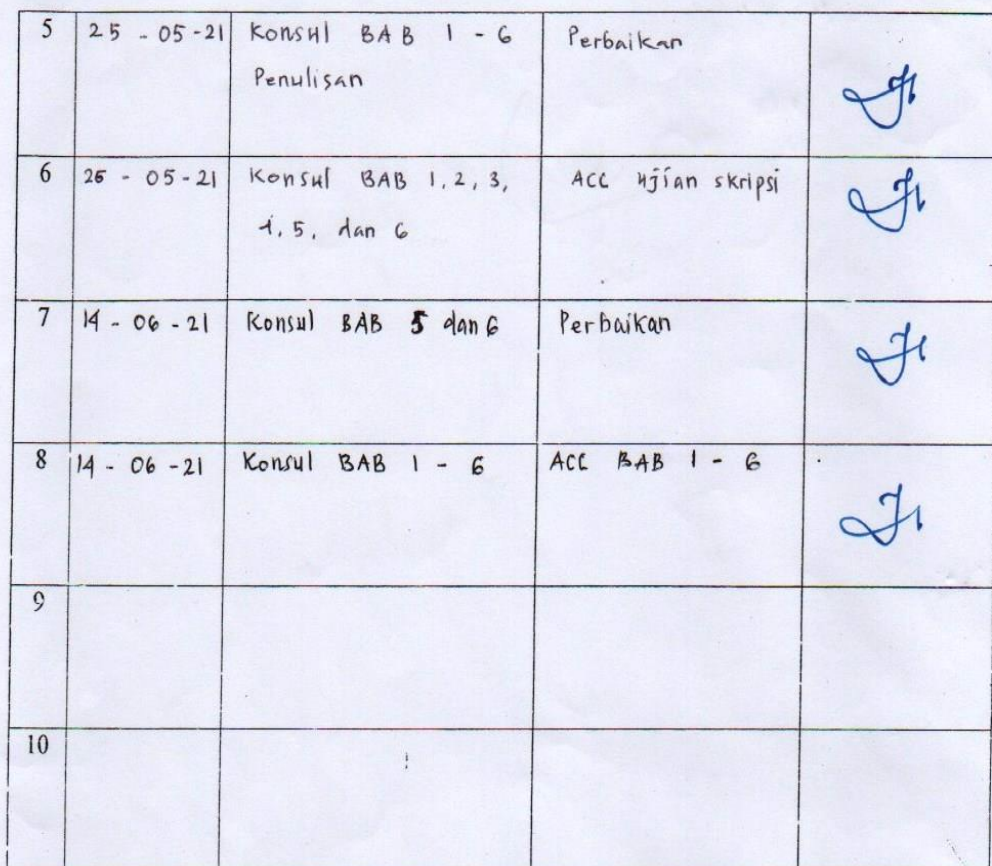 5 25 - 05-21 Konsul BAB 1 - 6 Perbaikan
Penulisan
6 26 - 05-21 Konsul BAB 1, 2, 3, ACC Ujian skripsi
4, 5, dan 6
7 14 - 06 -21 Konsul BAB 5 dan 6 Perbaikan
8 14 - 06 -21 Konsul BAB 1 - 6 ACC BAB 1 - 6
9
10